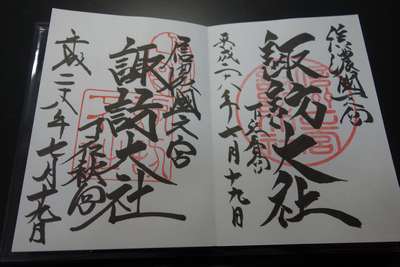 信濃國一宮
諏訪大社
下社春宮
平成二十八年七月十九日
信濃國一之宮
諏訪大社
下社秋宮
平成二十八年七月十九日